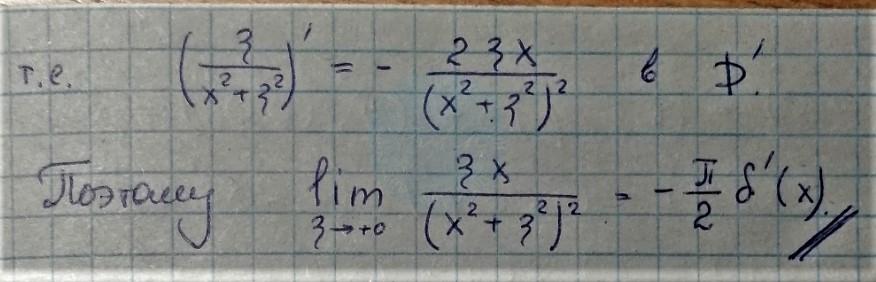 т.е. (ξ / (x² + ξ²))' = - 2ξx / (x² + ξ²)² в D'.
Поэтому lim ξ→+0 ξx / (x² + ξ²)² = - π/2 δ'(x).